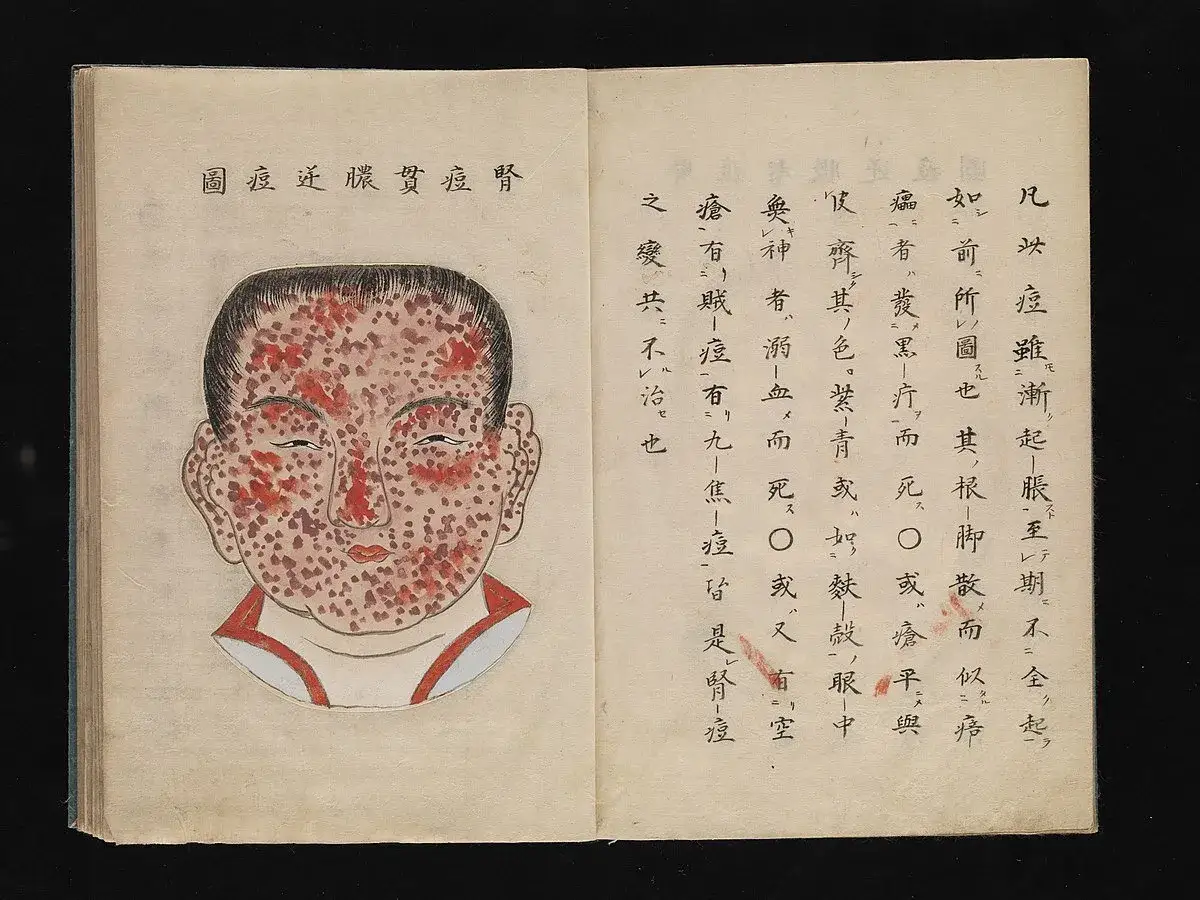 凡此痘雖漸起脹至期不全起
如前所圖也其根脚散而似痞
癗者發黒疔而死〇或瘡平與
皮齊其色紫青或如麩殻眼中
無神者溺血而死〇或又有空
瘡有賊痘有九焦痘皆是腎痘
之變共不治也
腎痘貫膿逆痘圖